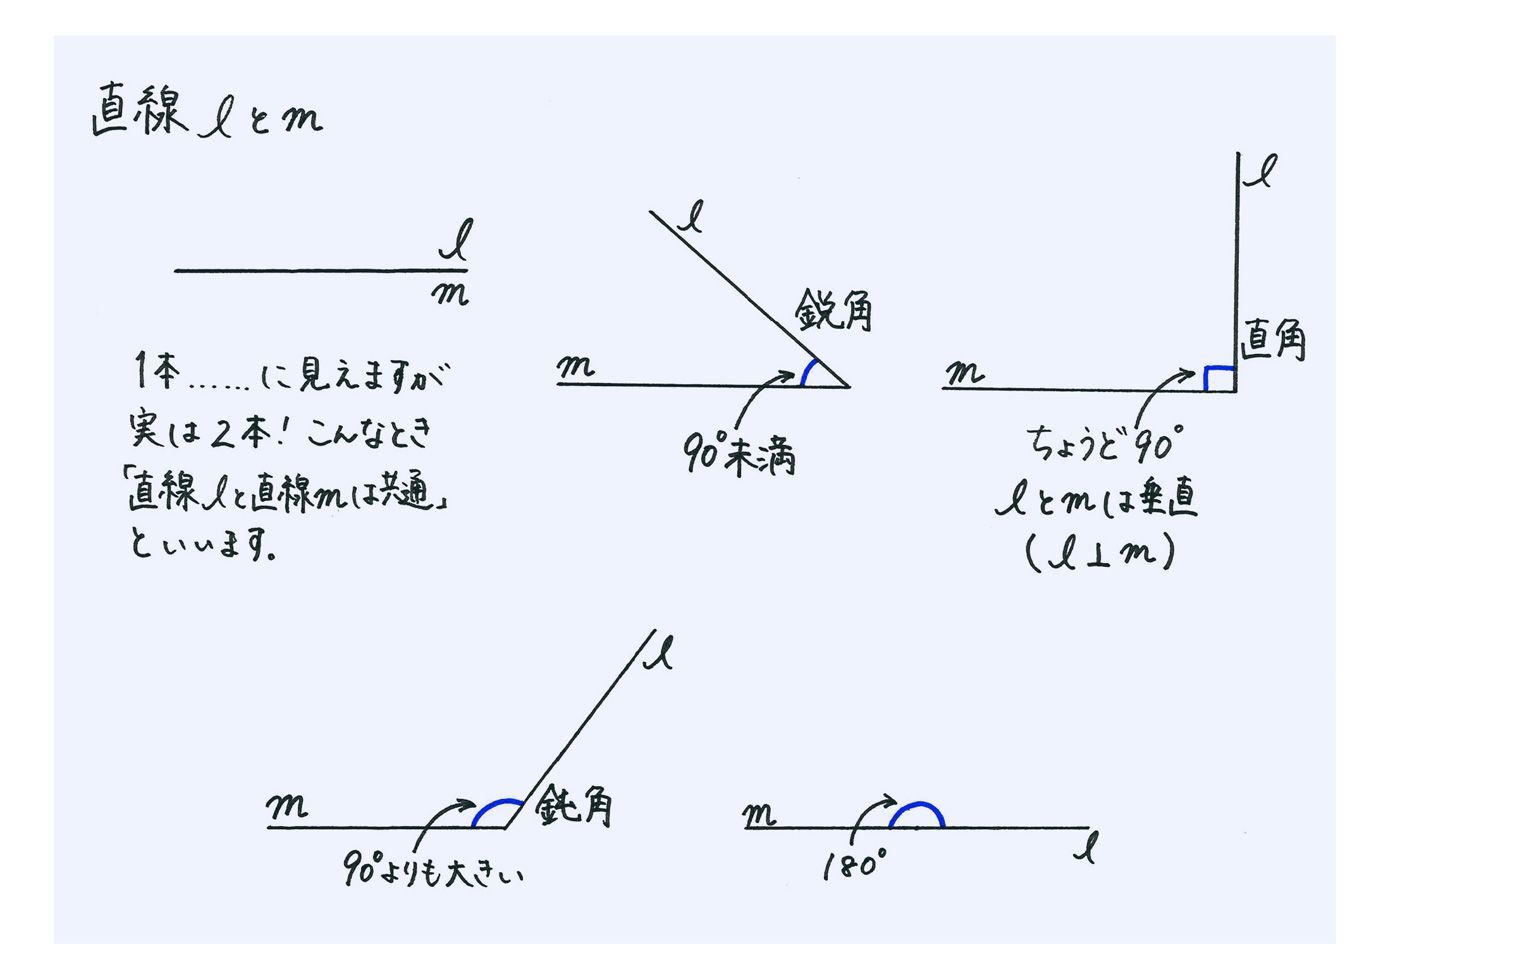 直線lとm
l
m
1本……に見えますが
実は2本!こんなとき
「直線lと直線mは共通」
といいます。
l
鋭角
m
90°未満
l
直角
m
ちょうど90°
lとmは垂直
(l⊥m)
l
m
鈍角
90°よりも大きい
m
180°
l